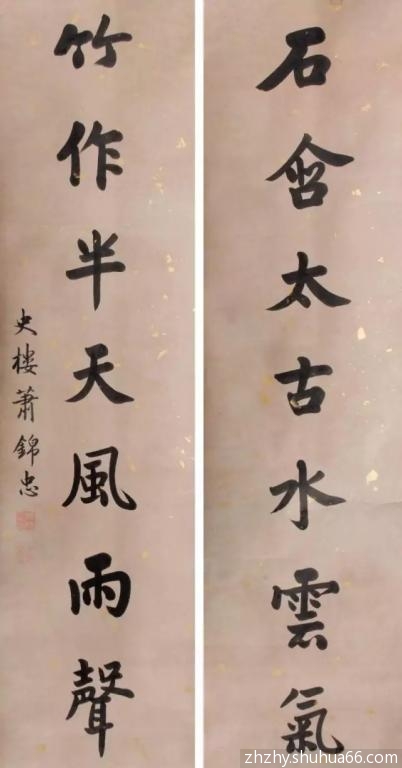 石含太古水雲氣
竹作半天風雨聲
史樓蕭錦忠
zhzhyshuhua66.com